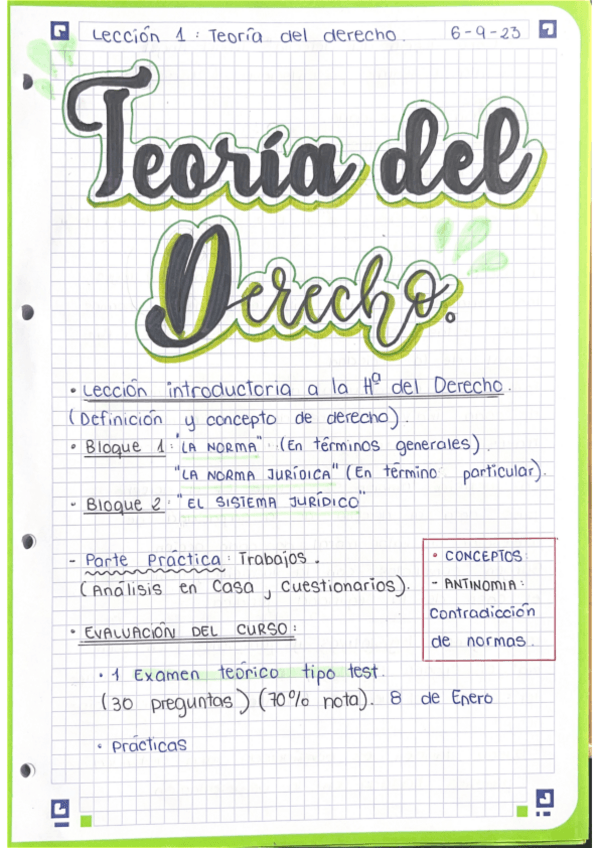 Lección 1 : Teoría del derecho. 6-9-23
Teoría del
Derecho.
• Lección introductoria a la Hª del Derecho.
(Definición y concepto de derecho).
• Bloque 1: "LA NORMA" (En términos generales).
"LA NORMA JURÍDICA" (En término particular).
- Bloque 2: "EL SISTEMA JURÍDICO"
- Parte Práctica: Trabajos.
(Análisis en Casa, Cuestionarios).
• CONCEPTOS:
- ANTINOMIA:
Contradicción
de normas.
• EVALUACIÓN DEL CURSO:
• 1 Examen teórico tipo test.
(30 preguntas) (70% nota). 8 de Enero
• Prácticas